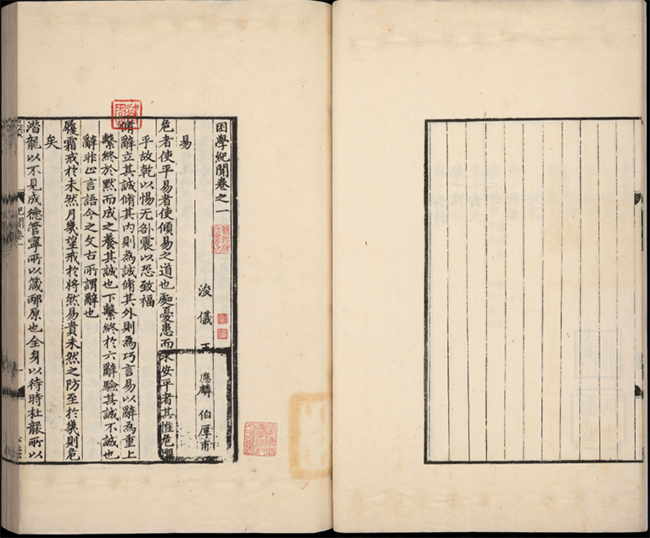 困學紀聞卷之一
浚儀 王 應麟 伯厚甫
易
危者使平易者使傾易之道也處憂患而求安平者其惟危懼
乎故乾以惕无咎震以恐致福
脩辭立其誠脩其内則為誠脩其外則為巧言易以辭為重上
繫終於黙而成之養其誠也下繫終於六辭驗其誠不誠也
辭非止言語今之文古所謂辭也
履霜戒於未然月幾望戒於將然易貴未然之防至於幾則危
矣
潛龍以不見成德管寧所以箴邴原也全身以待時杜襲所以